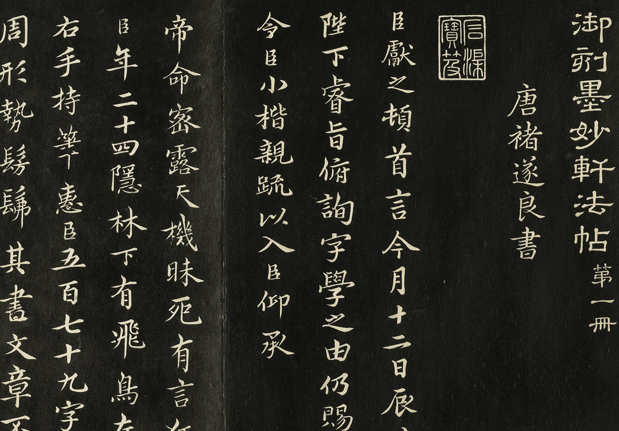 御刻墨妙軒法帖第一冊
唐褚遂良書
石渠寶笈
臣獻之頓首言今月十二日辰
陛下睿旨俯詢字學之由仍賜
令臣小楷親疏以入臣仰承
帝命密露天機昧死有言
臣年二十四隱林下有飛鳥
右手持筆惠臣五百七十九字
周形勢髣髴其書文章不